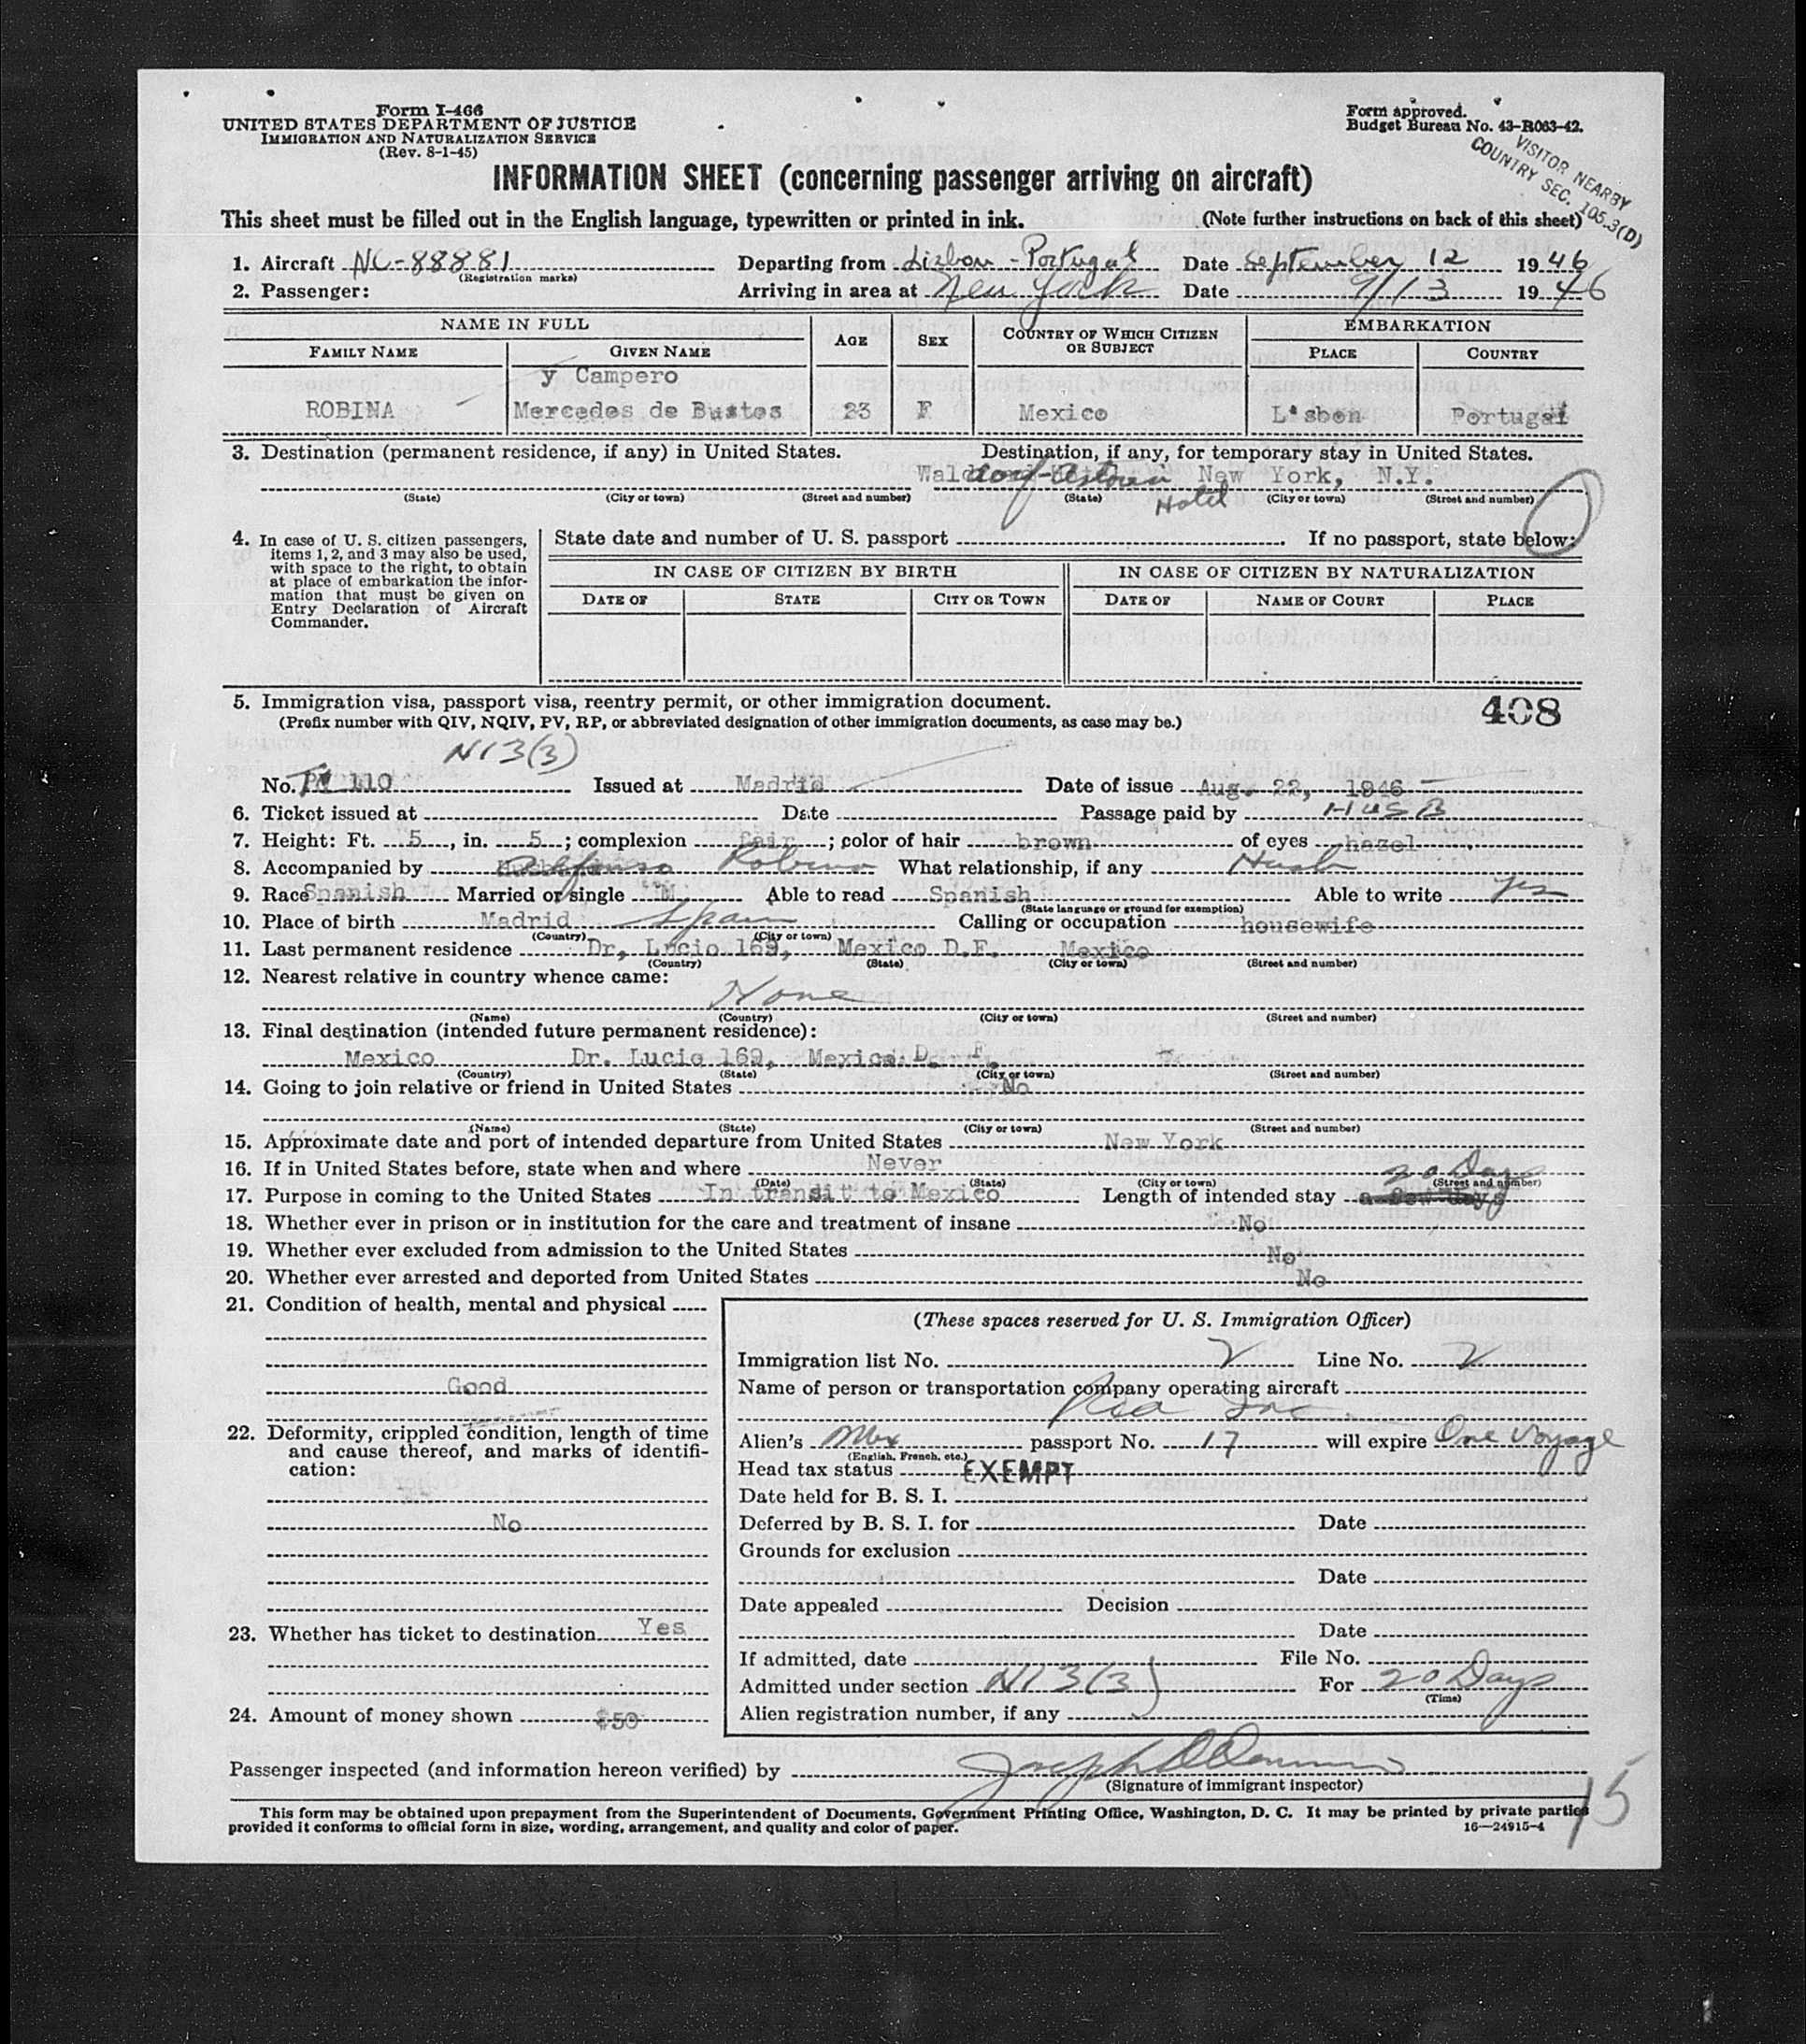 Form I-466
UNITED STATES DEPARTMENT OF JUSTICE
IMMIGRATION AND NATURALIZATION SERVICE
(Rev. 8-1-45)
Form approved.
Budget Bureau No. 43-R063-42.
VISITOR NEARBY
COUNTRY SEC. 105.3(D)
INFORMATION SHEET (concerning passenger arriving on aircraft)
This sheet must be filled out in the English language, typewritten or printed in ink. (Note further instructions on back of this sheet)
1. Aircraft NC-88881 Departing from Lisbon - Portugal Date September 12 1946
(Registration marks)
2. Passenger: Arriving in area at New York Date 9/13 1946
NAME IN FULL AGE SEX COUNTRY OF WHICH CITIZEN OR SUBJECT EMBARKATION
FAMILY NAME GIVEN NAME PLACE COUNTRY
y Campero
ROBINA Mercedes de Bustos 23 F Mexico L'sbon Portugal
3. Destination (permanent residence, if any) in United States. Destination, if any, for temporary stay in United States.
Waldorf-Astoria New York, N.Y.
Hotel
(State) (City or town) (Street and number) (State) (City or town) (Street and number)
4. In case of U. S. citizen passengers, items 1, 2, and 3 may also be used, with space to the right, to obtain at place of embarkation the information that must be given on Entry Declaration of Aircraft Commander.
State date and number of U. S. passport If no passport, state below:
IN CASE OF CITIZEN BY BIRTH IN CASE OF CITIZEN BY NATURALIZATION
DATE OF STATE CITY OR TOWN DATE OF NAME OF COURT PLACE
5. Immigration visa, passport visa, reentry permit, or other immigration document. 408
(Prefix number with QIV, NQIV, PV, RP, or abbreviated designation of other immigration documents, as case may be.)
NI 3(3)
No. 110 Issued at Madrid Date of issue Aug. 22, 1946
6. Ticket issued at Date Passage paid by HUSB
7. Height: Ft. 5, in. 5; complexion fair; color of hair brown of eyes hazel
8. Accompanied by Alfonso Robina What relationship, if any Husb
9. Race Spanish Married or single M. Able to read Spanish Able to write yes
(State language or ground for exemption)
10. Place of birth Madrid Spain Calling or occupation housewife
(Country) (City or town)
11. Last permanent residence Dr. Lucio 169, Mexico D.F. Mexico
(Country) (State) (City or town) (Street and number)
12. Nearest relative in country whence came:
None
(Name) (Country) (City or town) (Street and number)
13. Final destination (intended future permanent residence):
Mexico Dr. Lucio 169, Mexico D. F.
(Country) (State) (City or town) (Street and number)
14. Going to join relative or friend in United States No
(Name) (State) (City or town) (Street and number)
15. Approximate date and port of intended departure from United States New York
16. If in United States before, state when and where Never
(Date) (State) (City or town) (Street and number)
20 Days
17. Purpose in coming to the United States In transit to Mexico Length of intended stay a few days
18. Whether ever in prison or in institution for the care and treatment of insane No
19. Whether ever excluded from admission to the United States No
20. Whether ever arrested and deported from United States No
21. Condition of health, mental and physical
Good
22. Deformity, crippled condition, length of time and cause thereof, and marks of identification:
No
23. Whether has ticket to destination Yes
24. Amount of money shown $50
(These spaces reserved for U. S. Immigration Officer)
Immigration list No. 2 Line No. 2
Name of person or transportation company operating aircraft
Inc
Alien's Mex passport No. 17 will expire One Voyage
(English, French, etc.)
Head tax status EXEMPT
Date held for B. S. I.
Deferred by B. S. I. for Date
Grounds for exclusion
Date
Date appealed Decision
Date
If admitted, date File No.
Admitted under section NI 3(3) For 20 Days
(Time)
Alien registration number, if any
Passenger inspected (and information hereon verified) by Joseph
(Signature of immigrant inspector)
15
This form may be obtained upon prepayment from the Superintendent of Documents, Government Printing Office, Washington, D. C. It may be printed by private parties
provided it conforms to official form in size, wording, arrangement, and quality and color of paper. 16—24915-4